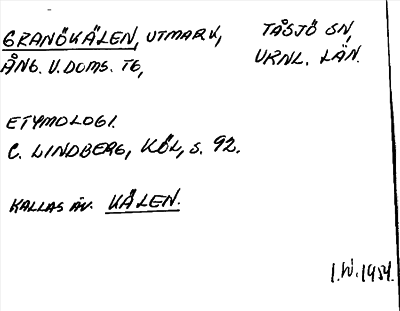 GRANÖKÄLEN, UTMARK, TÅSJÖ SN,
ÅNG. V. DOMS. TG, VRNL. LÄN.
ETYMOLOGI.
C. LINDBERG, KÖL, S. 92.
KALLAS ÄV. KÄLEN.
I.W. 1984.